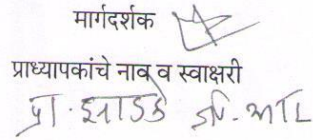 मार्गदर्शक
प्राध्यापकांचे नाव व स्वाक्षरी
प्रा. झाडके